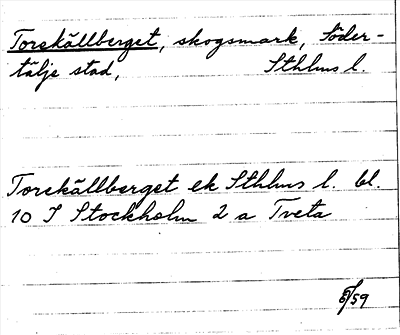 Torekällberget, skogsmark, Söder-
tälje stad, Sthlms l.
Torekällberget ek Sthlms l. bl.
10 I Stockholm 2 a Tveta
6/59